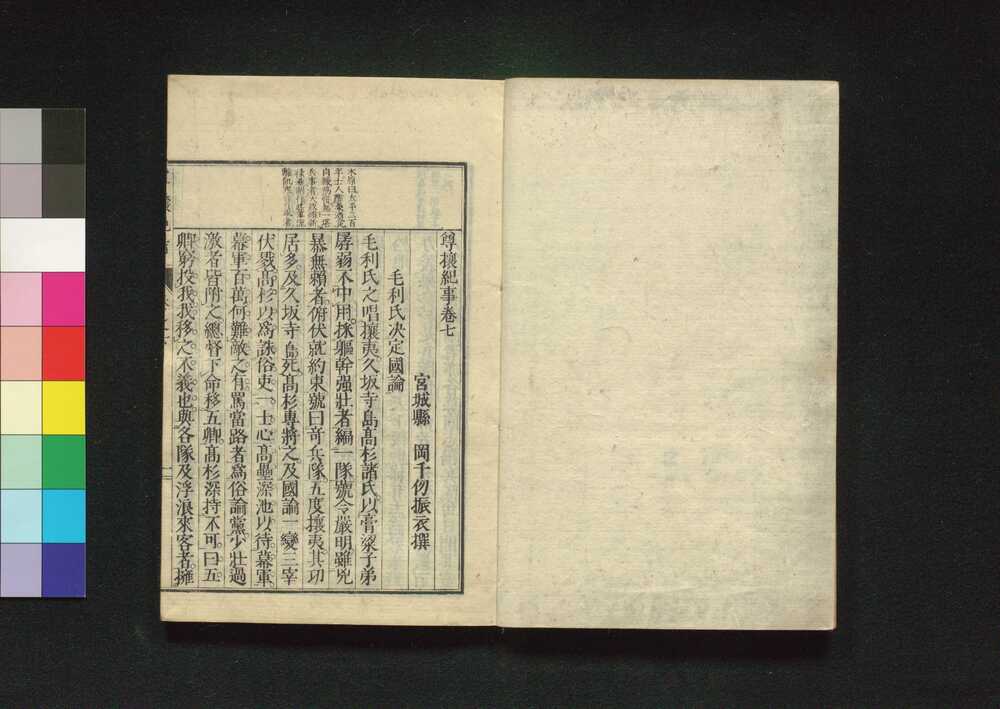 尊攘紀事卷七
宮城縣 岡千仞振衣撰
毛利氏決定國論
毛利氏之唱攘夷久坂寺島高杉諸氏以膏粱子弟
孱弱不中用採軀幹强壯者編一隊號令嚴明雖兇
暴無賴者俯伏就約束號曰奇兵隊五度攘夷其功
居多及久坂寺島死高杉專將之及國論一變三宰
伏戮高杉以爲誅俗吏一士心高壘深池以待幕軍
幕軍百萬何難敵之有罵當路者爲俗論黨少壯過
激者皆附之總督下命移五卿高杉深持不可曰五
卿窮投我我移之不義也與各隊及浮浪來客者擁